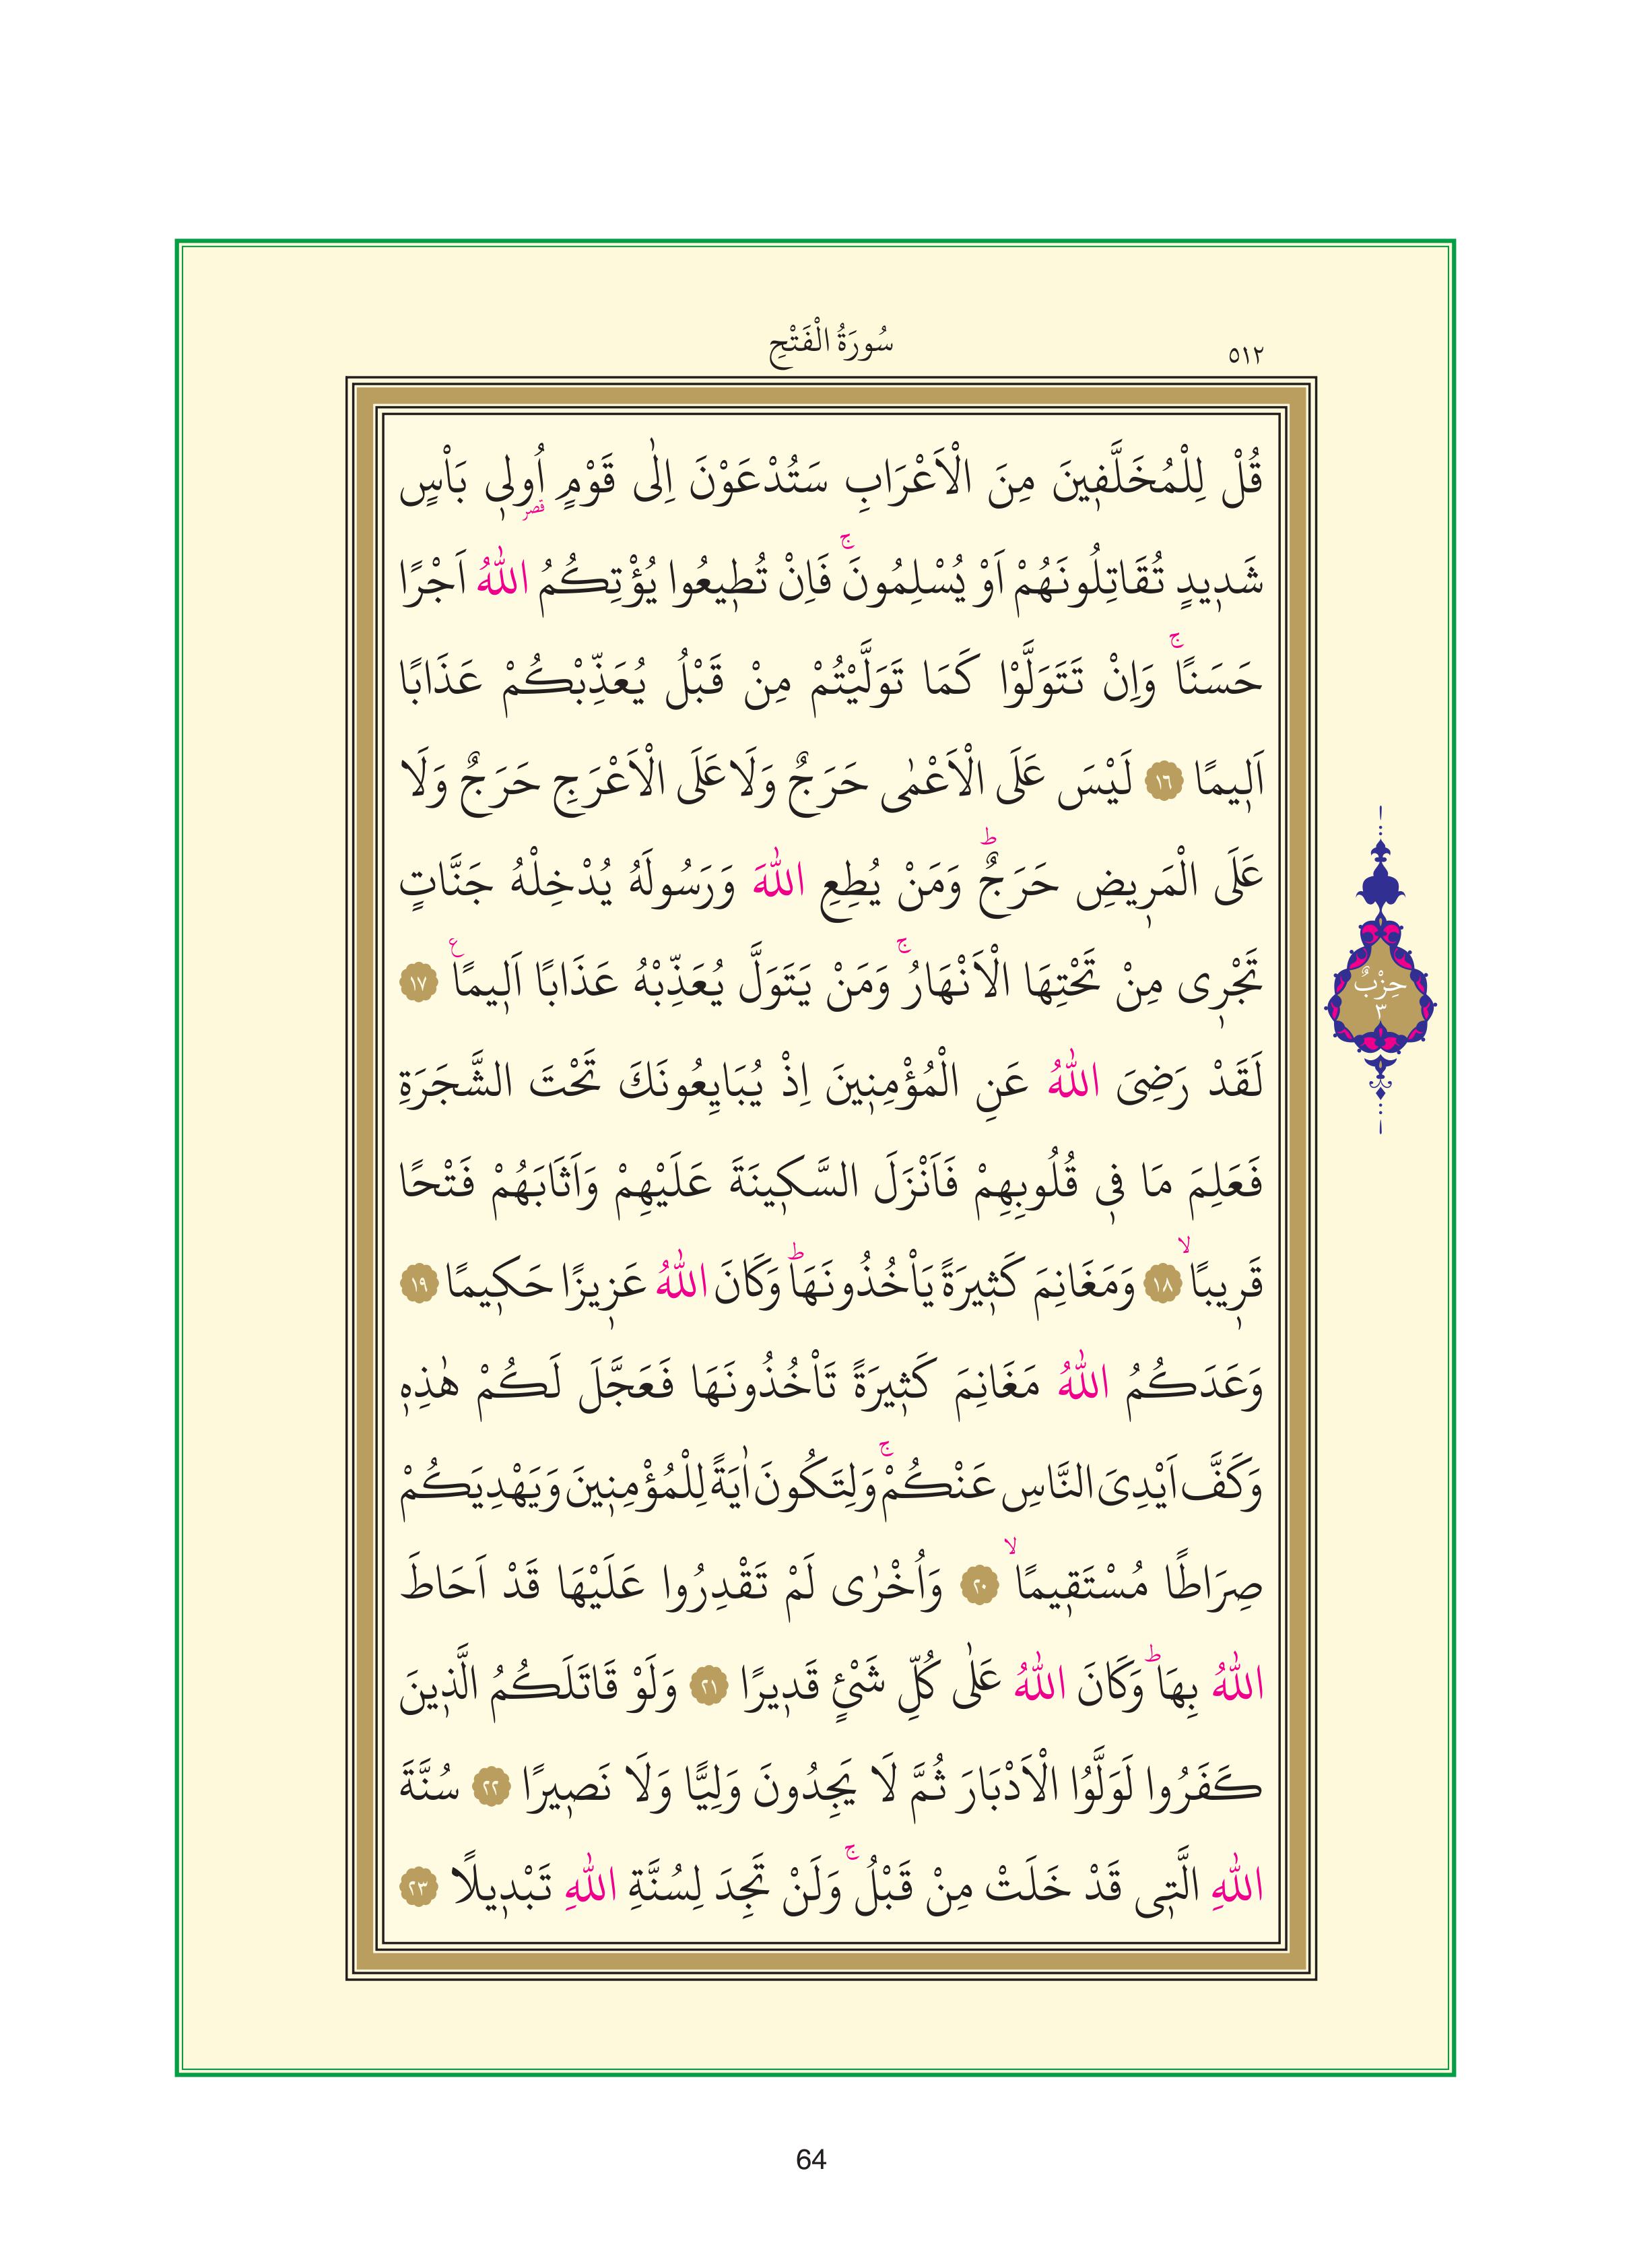 ٥١٢
سُورَةُ الْفَتْحِ
قُلْ لِلْمُخَلَّفٖينَ مِنَ الْاَعْرَابِ سَتُدْعَوْنَ اِلٰى قَوْمٍ اُولٖى بَاْسٍ
قصر
شَدٖيدٍ تُقَاتِلُونَهُمْ اَوْ يُسْلِمُونَۚ فَاِنْ تُطٖيعُوا يُؤْتِكُمُ اللّٰهُ اَجْرًا
حَسَنًاۚ وَاِنْ تَتَوَلَّوْا كَمَا تَوَلَّيْتُمْ مِنْ قَبْلُ يُعَذِّبْكُمْ عَذَابًا
اَلٖيمًا ١٦ لَيْسَ عَلَى الْاَعْمٰى حَرَجٌ وَلَا عَلَى الْاَعْرَجِ حَرَجٌ وَلَا
عَلَى الْمَرٖيضِ حَرَجٌؕ وَمَنْ يُطِعِ اللّٰهَ وَرَسُولَهُ يُدْخِلْهُ جَنَّاتٍ
تَجْرٖى مِنْ تَحْتِهَا الْاَنْهَارُۚ وَمَنْ يَتَوَلَّ يُعَذِّبْهُ عَذَابًا اَلٖيمًا ع ١٧
لَقَدْ رَضِىَ اللّٰهُ عَنِ الْمُؤْمِنٖينَ اِذْ يُبَايِعُونَكَ تَحْتَ الشَّجَرَةِ
فَعَلِمَ مَا فٖى قُلُوبِهِمْ فَاَنْزَلَ السَّكٖينَةَ عَلَيْهِمْ وَاَثَابَهُمْ فَتْحًا
قَرٖيبًاۙ ١٨ وَمَغَانِمَ كَثٖيرَةً يَاْخُذُونَهَاؕ وَكَانَ اللّٰهُ عَزٖيزًا حَكٖيمًا ١٩
وَعَدَكُمُ اللّٰهُ مَغَانِمَ كَثٖيرَةً تَاْخُذُونَهَا فَعَجَّلَ لَكُمْ هٰذِهٖ
وَكَفَّ اَيْدِىَ النَّاسِ عَنْكُمْۚ وَلِتَكُونَ اٰيَةً لِلْمُؤْمِنٖينَ وَيَهْدِيَكُمْ
صِرَاطًا مُسْتَقٖيمًاۙ ٢٠ وَاُخْرٰى لَمْ تَقْدِرُوا عَلَيْهَا قَدْ اَحَاطَ
اللّٰهُ بِهَاؕ وَكَانَ اللّٰهُ عَلٰى كُلِّ شَىْءٍ قَدٖيرًا ٢١ وَلَوْ قَاتَلَكُمُ الَّذٖينَ
كَفَرُوا لَوَلَّوُا الْاَدْبَارَ ثُمَّ لَا يَجِدُونَ وَلِيًّا وَلَا نَصٖيرًا ٢٢ سُنَّةَ
اللّٰهِ الَّتٖى قَدْ خَلَتْ مِنْ قَبْلُۚ وَلَنْ تَجِدَ لِسُنَّةِ اللّٰهِ تَبْدٖيلًا ٢٣
حِزْبٌ
٣
64